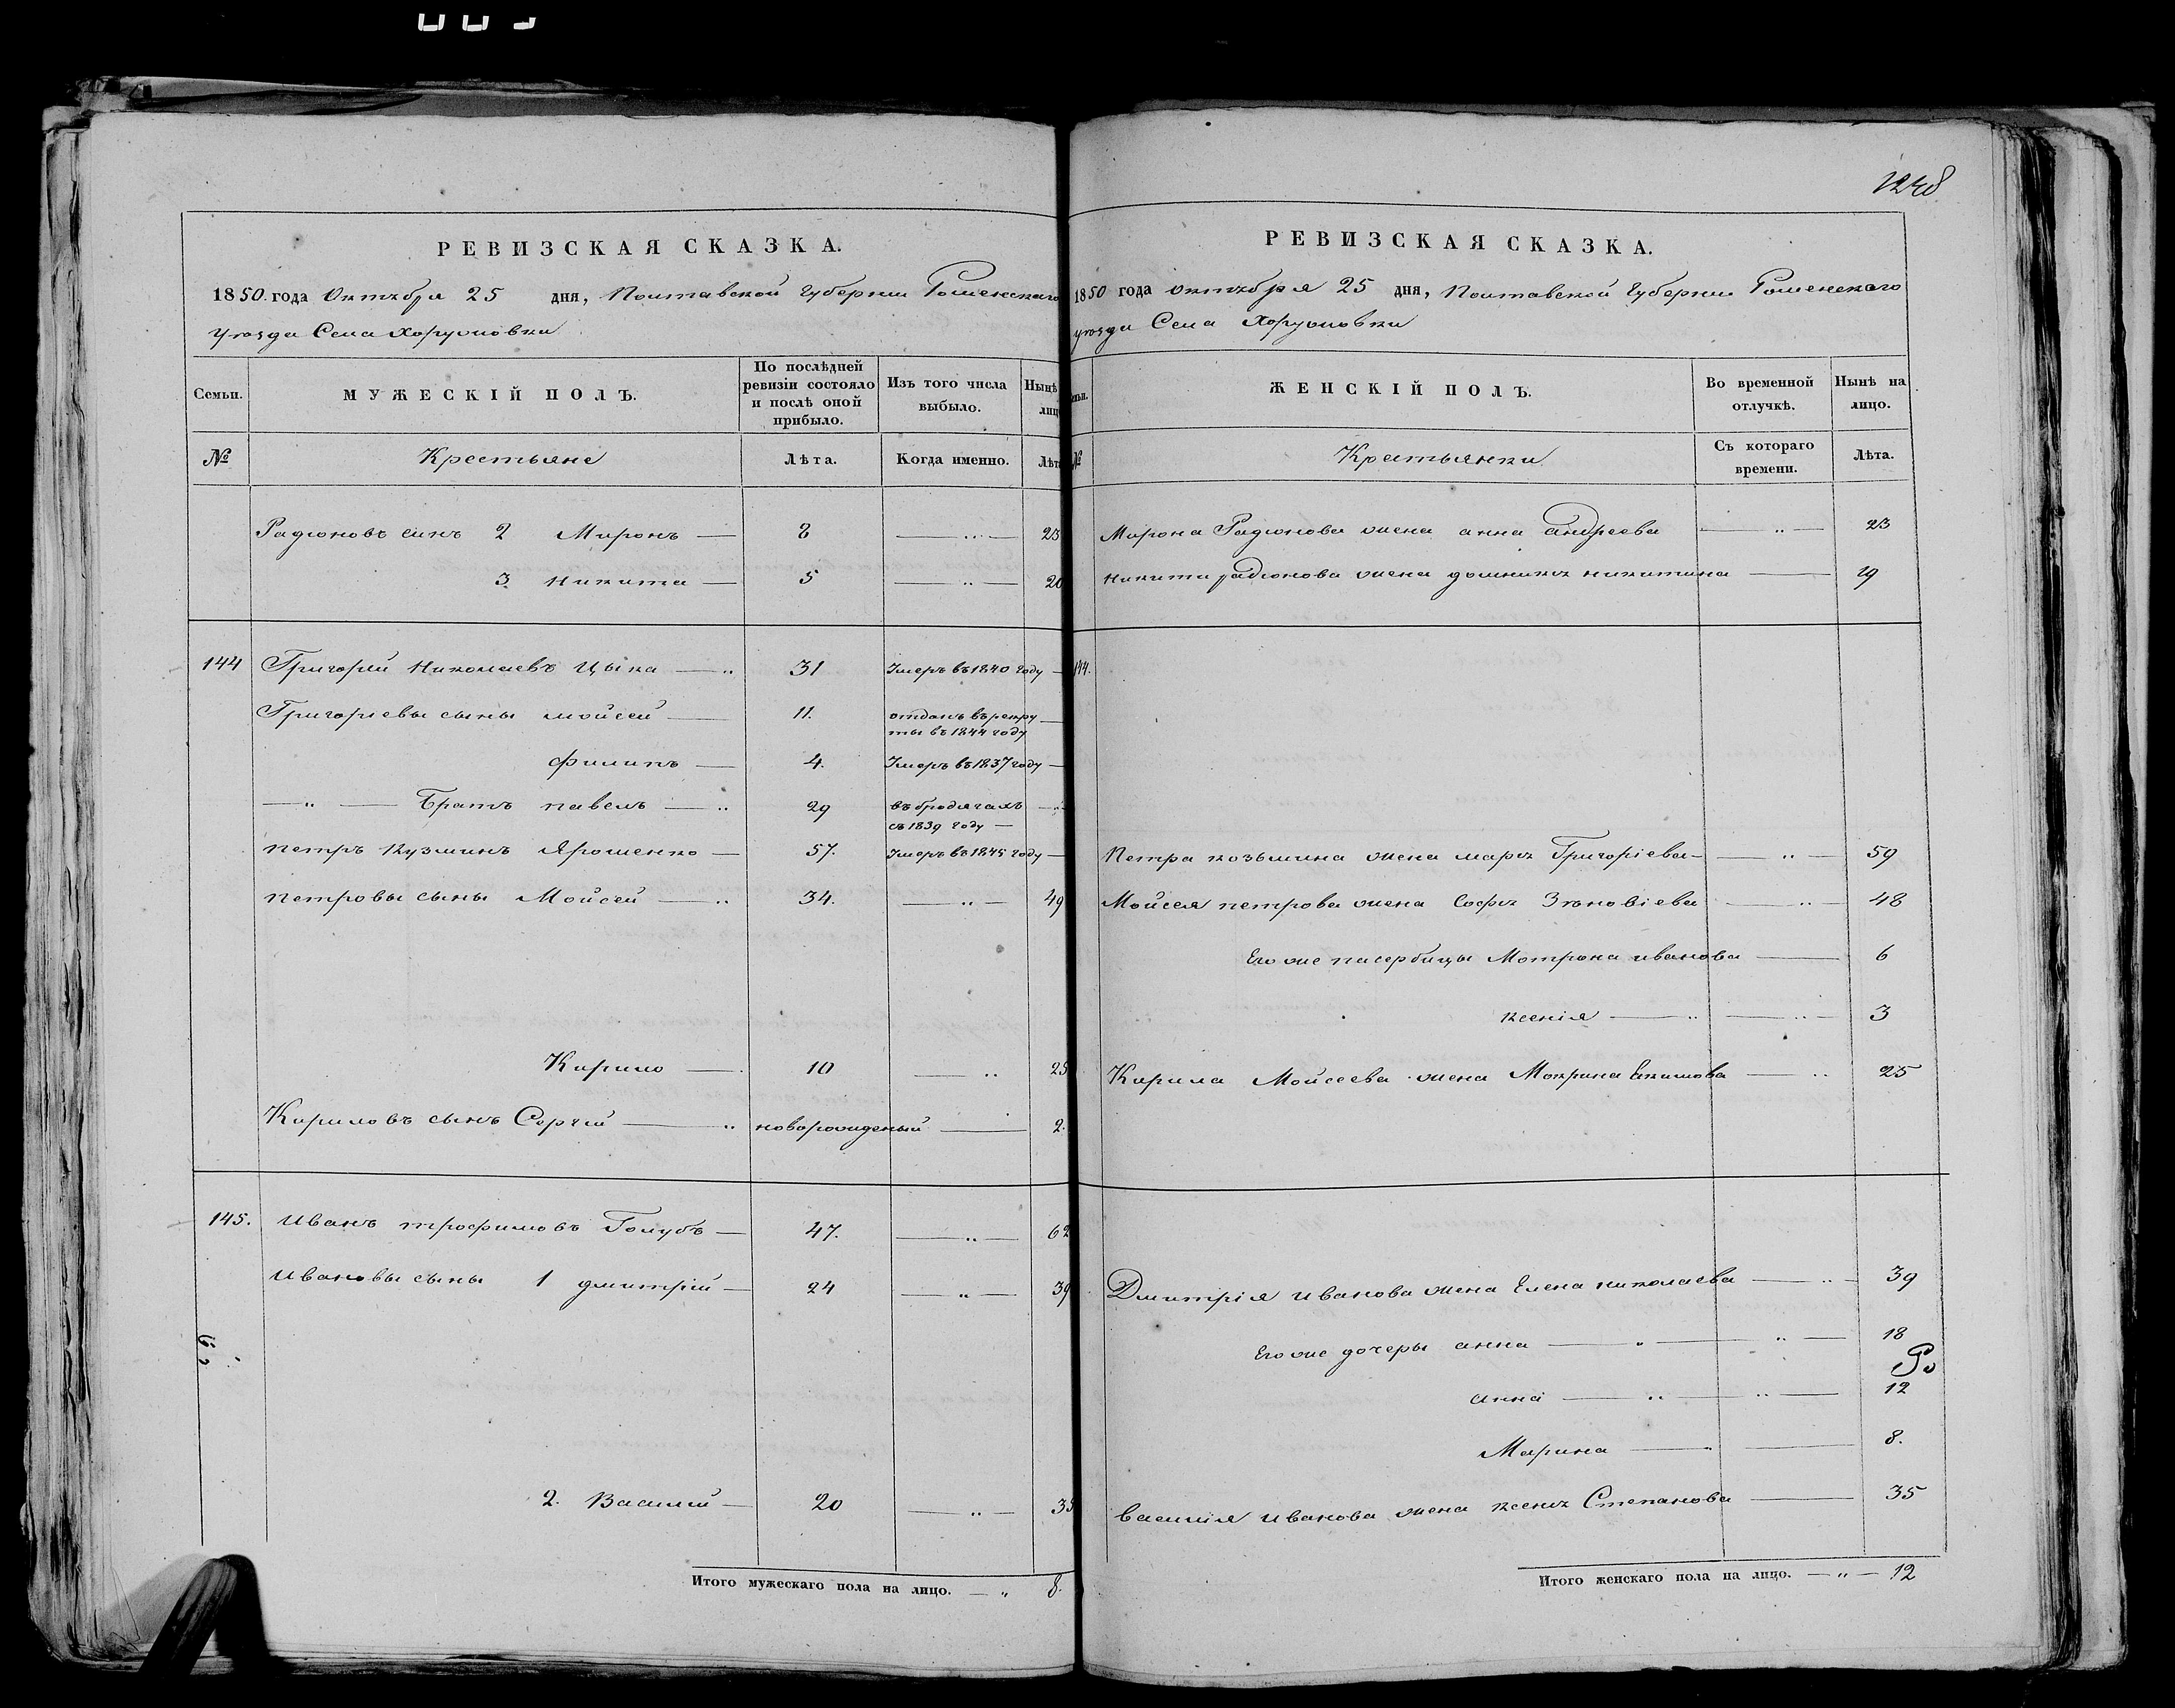 1248
РЕВИЗСКАЯ СКАЗКА.
1850. года Октября 25 дня, Полтавской Губернии Роменскаго
Уѣзда Села Хоружовки
Семьи. МУЖЕСКІЙ ПОЛЪ. По послѣдней ревизіи состояло и послѣ оной прибыло. Изъ того числа выбыло. Нынѣ лиц
№ Крестьяне Лѣта. Когда именно. Лѣт
Радіоновъ синъ 2 Миронъ — 8 — „ — 23
3 Никита — 5 — „ — 20
144 Григорій Николаевъ Цыка — „ 31 Умеръ въ 1840 году —
Григоріевы сыны Мойсей — 11. отданъ въ рекру
ты въ 1844 году
Филипъ — 4. Умеръ въ 1837 году —
— „ — Братъ павелъ — „ 29 въ бродягахъ — „
съ 1839 году —
петръ Кузминъ Ярошенко — 57. Умеръ въ 1845 году —
петровы сыны Мойсей — „ 34. — „ — 49
Кирило — 10 — „ 25
Кириловъ сынъ Сергій — „ новорожденый — 2.
145. Иванъ трофимовъ Голубъ — 47. — „ — 62
Ивановы сыны 1 дмитрій — 24 — „ — 39
2. Василій — 20 — „ — 35
Итого мужескаго пола на лицо. — „ 8.
РЕВИЗСКАЯ СКАЗКА.
1850 года октября 25 дня, Полтавской Губерніи Роменскаго
уѣзда Села Хоружовки
мьи. ЖЕНСКІЙ ПОЛЪ. Во временной отлучкѣ. Нынѣ на лицо.
№ Крестьянки Съ котораго времени. Лѣта.
Мирона Радіонова жена анна андреева — „ — 23
Никити радіонова жена домникя никитина — 19
144.
Петра козьмина жена маря Григоріева — „ — 59
Мойсея петрова жена Софя Зѣновіева — „ — 48
Его же пасербицы Мотрона иванова — 6
ксенія — „ — „ — 3
Кирила Мойсеева жена Мокрина Екимова — „ 25
Дмитрія иванова жена Елена николаева — „ — 39
Его же дочеры анна — „ — „ — 18
анна — „ — „ — 12
Марина — „ — 8.
василія иванова жена ксеня Степанова — 35
Итого женскаго пола на лицо. — „ — 12